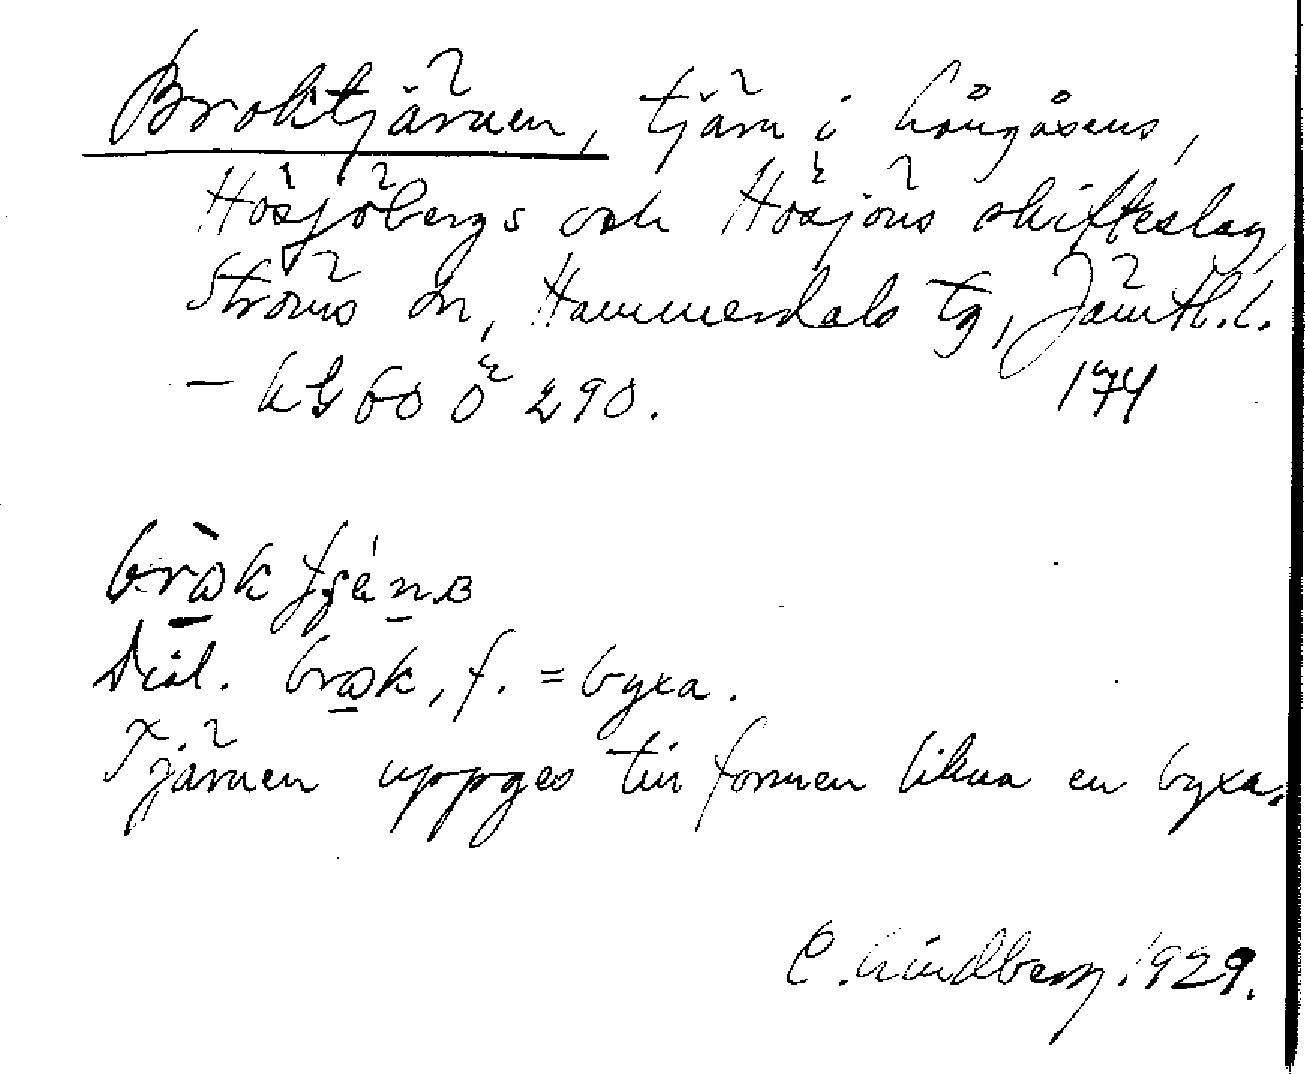 Broktjärnen, tjärn i Långåsens,
Hösjöbergs och Hösjöns skifteslag,
Ströms sn, Hammerdals tg, Jämtl. l.
– LG 60 Ö 290. 174
Dial. brɷk, f. = byxa.
Tjärnen uppges till formen likna en byxa.
C. Lindberg. 1929.